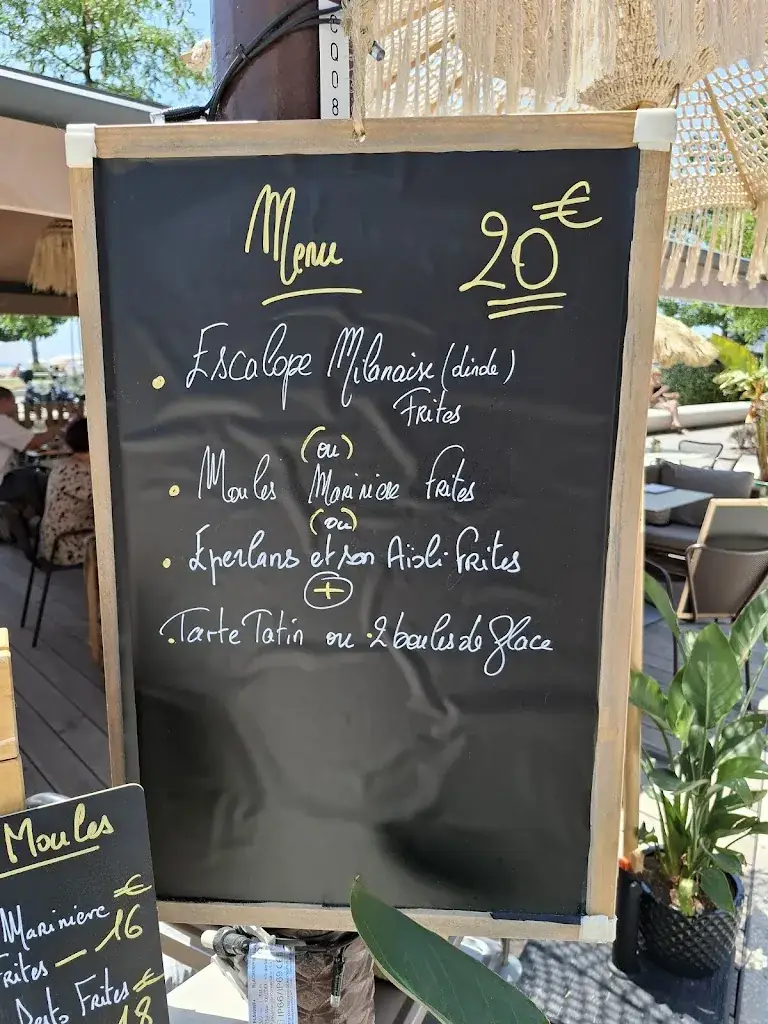 CQ08
Menu 20€
• Escalope Milanaise (dinde)
Frites
(ou)
• Moules Marinière frites
(ou)
• Éperlans et son Aïoli frites
+
• Tarte Tatin ou • 2 boules de glace
Moules
€
Marinière
Frites — 16
Pesto Frites €
18